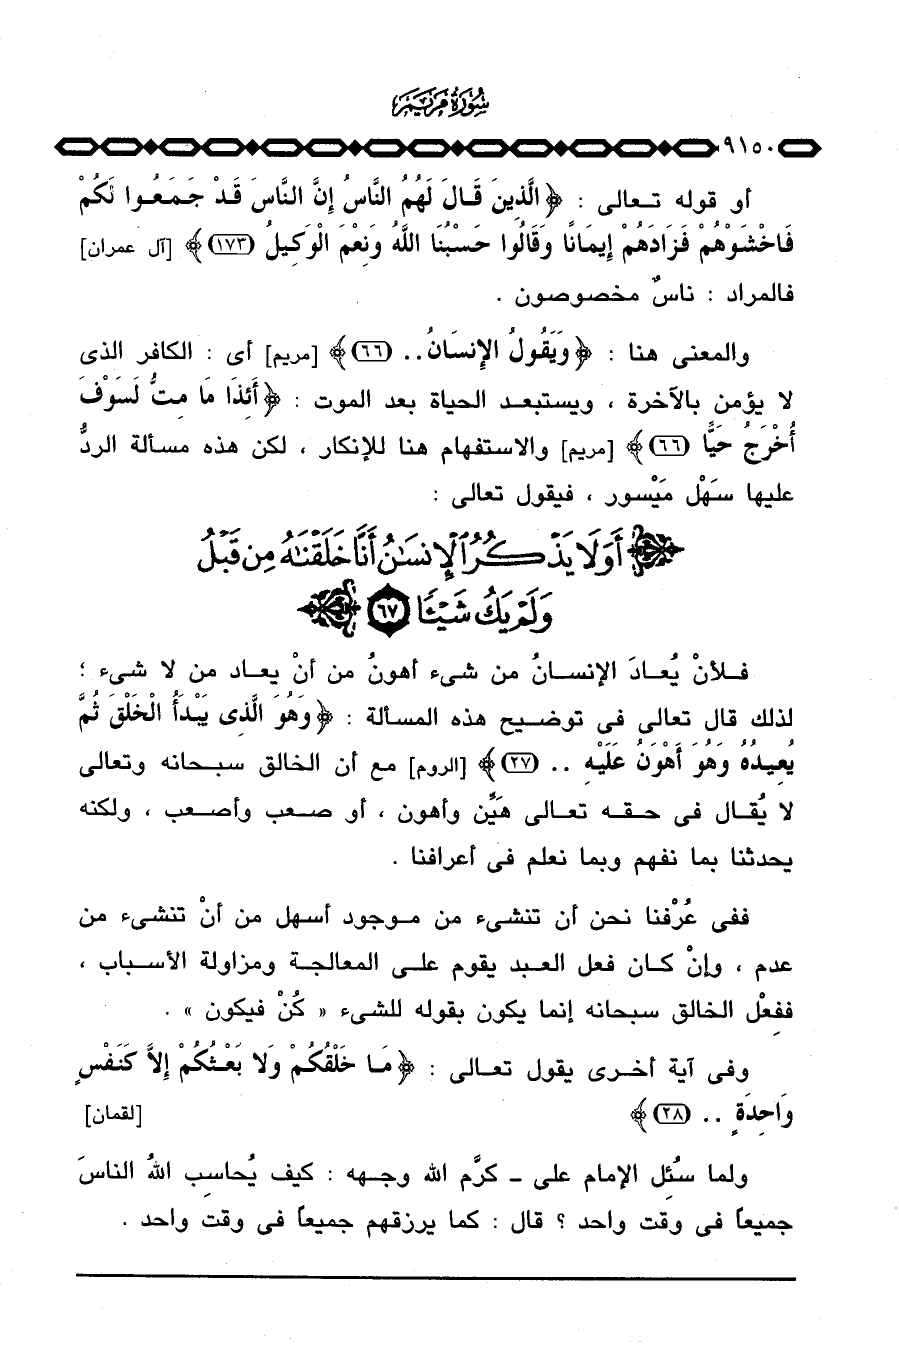 سُورَةُ مَرْيَمَ
٩١٥٠
أو قوله تعالى : ﴿ الَّذِينَ قَالَ لَهُمُ النَّاسُ إِنَّ النَّاسَ قَدْ جَمَعُوا لَكُمْ
فَاخْشَوْهُمْ فَزَادَهُمْ إِيمَانًا وَقَالُوا حَسْبُنَا اللَّهُ وَنِعْمَ الْوَكِيلُ (١٧٣) ﴾ [آل عمران]
فالمراد : ناسٌ مخصوصون .
والمعنى هنا : ﴿ وَيَقُولُ الإِنسَانُ .. (٦٦) ﴾ [مريم] أى : الكافر الذى
لا يؤمن بالآخرة ، ويستبعد الحياة بعد الموت : ﴿ أَئِذَا مَا مِتُّ لَسَوْفَ
أُخْرَجُ حَيًّا (٦٦) ﴾ [مريم] والاستفهام هنا للإنكار ، لكن هذه مسألة الردُّ
عليها سَهْل مَيْسور ، فيقول تعالى :
﴿ أَوَلَا يَذْكُرُ الْإِنسَٰنُ أَنَّا خَلَقْنَٰهُ مِن قَبْلُ
وَلَمْ يَكُ شَيْـًٔا ٦٧ ﴾
فلأنْ يُعادَ الإنسانُ من شىء أهونُ من أنْ يعاد من لا شىء ؛
لذلك قال تعالى فى توضيح هذه المسألة : ﴿ وَهُوَ الَّذِى يَبْدَأُ الْخَلْقَ ثُمَّ
يُعِيدُهُ وَهُوَ أَهْوَنُ عَلَيْهِ .. (٢٧) ﴾ [الروم] مع أن الخالق سبحانه وتعالى
لا يُقال فى حقه تعالى هَيِّن وأهون ، أو صعب وأصعب ، ولكنه
يحدثنا بما نفهم وبما نعلم فى أعرافنا .
ففى عُرْفنا نحن أن تنشىء من موجود أسهل من أنْ تنشىء من
عدم ، وإنْ كان فعل العبد يقوم على المعالجة ومزاولة الأسباب ،
ففعْل الخالق سبحانه إنما يكون بقوله للشىء « كُنْ فيكون » .
وفى آية أخرى يقول تعالى : ﴿ مَا خَلْقُكُمْ وَلا بَعْثُكُمْ إِلاَّ كَنَفْسٍ
وَاحِدَةٍ .. (٢٨) ﴾ [لقمان]
ولما سُئِل الإمام على ــ كرَّم الله وجهه : كيف يُحاسِب اللهُ الناسَ
جميعاً فى وقت واحد ؟ قال : كما يرزقهم جميعاً فى وقت واحد .